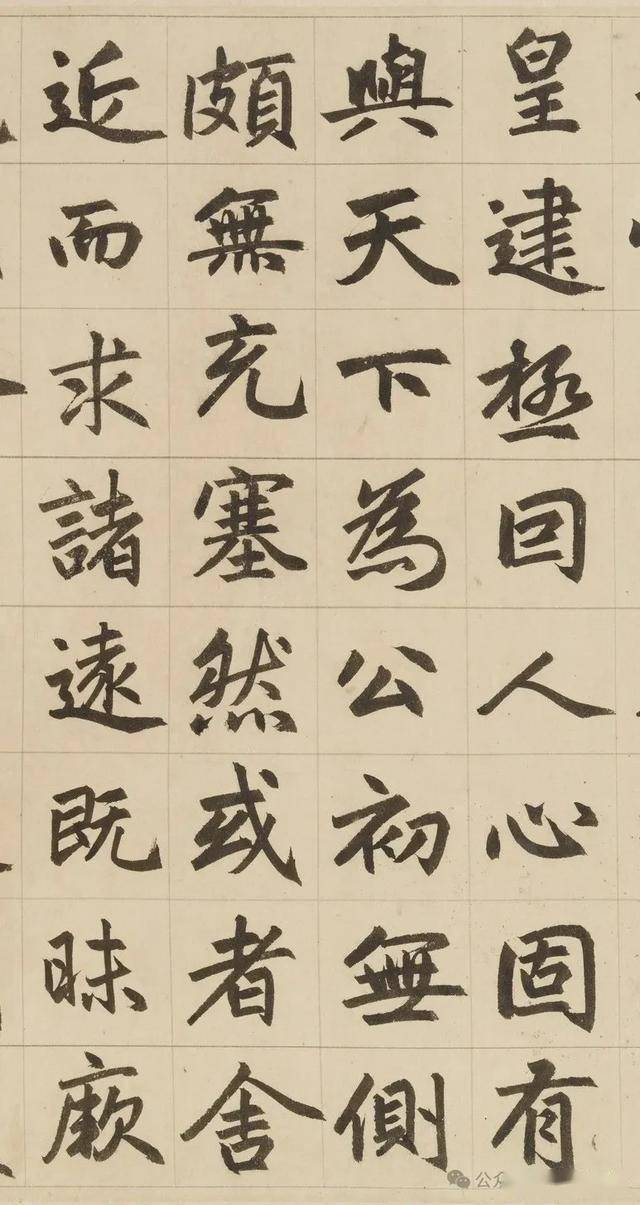 皇建極回人心固有
與天下為公初無側
頗無充塞然或者舍
近而求諸遠既昧厥
公众